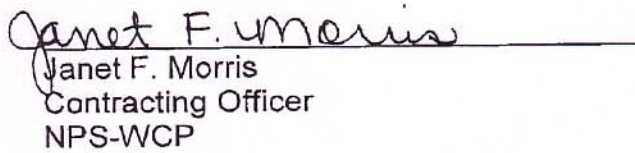 Janet F. Morris
Janet F. Morris
Contracting Officer
NPS-WCP